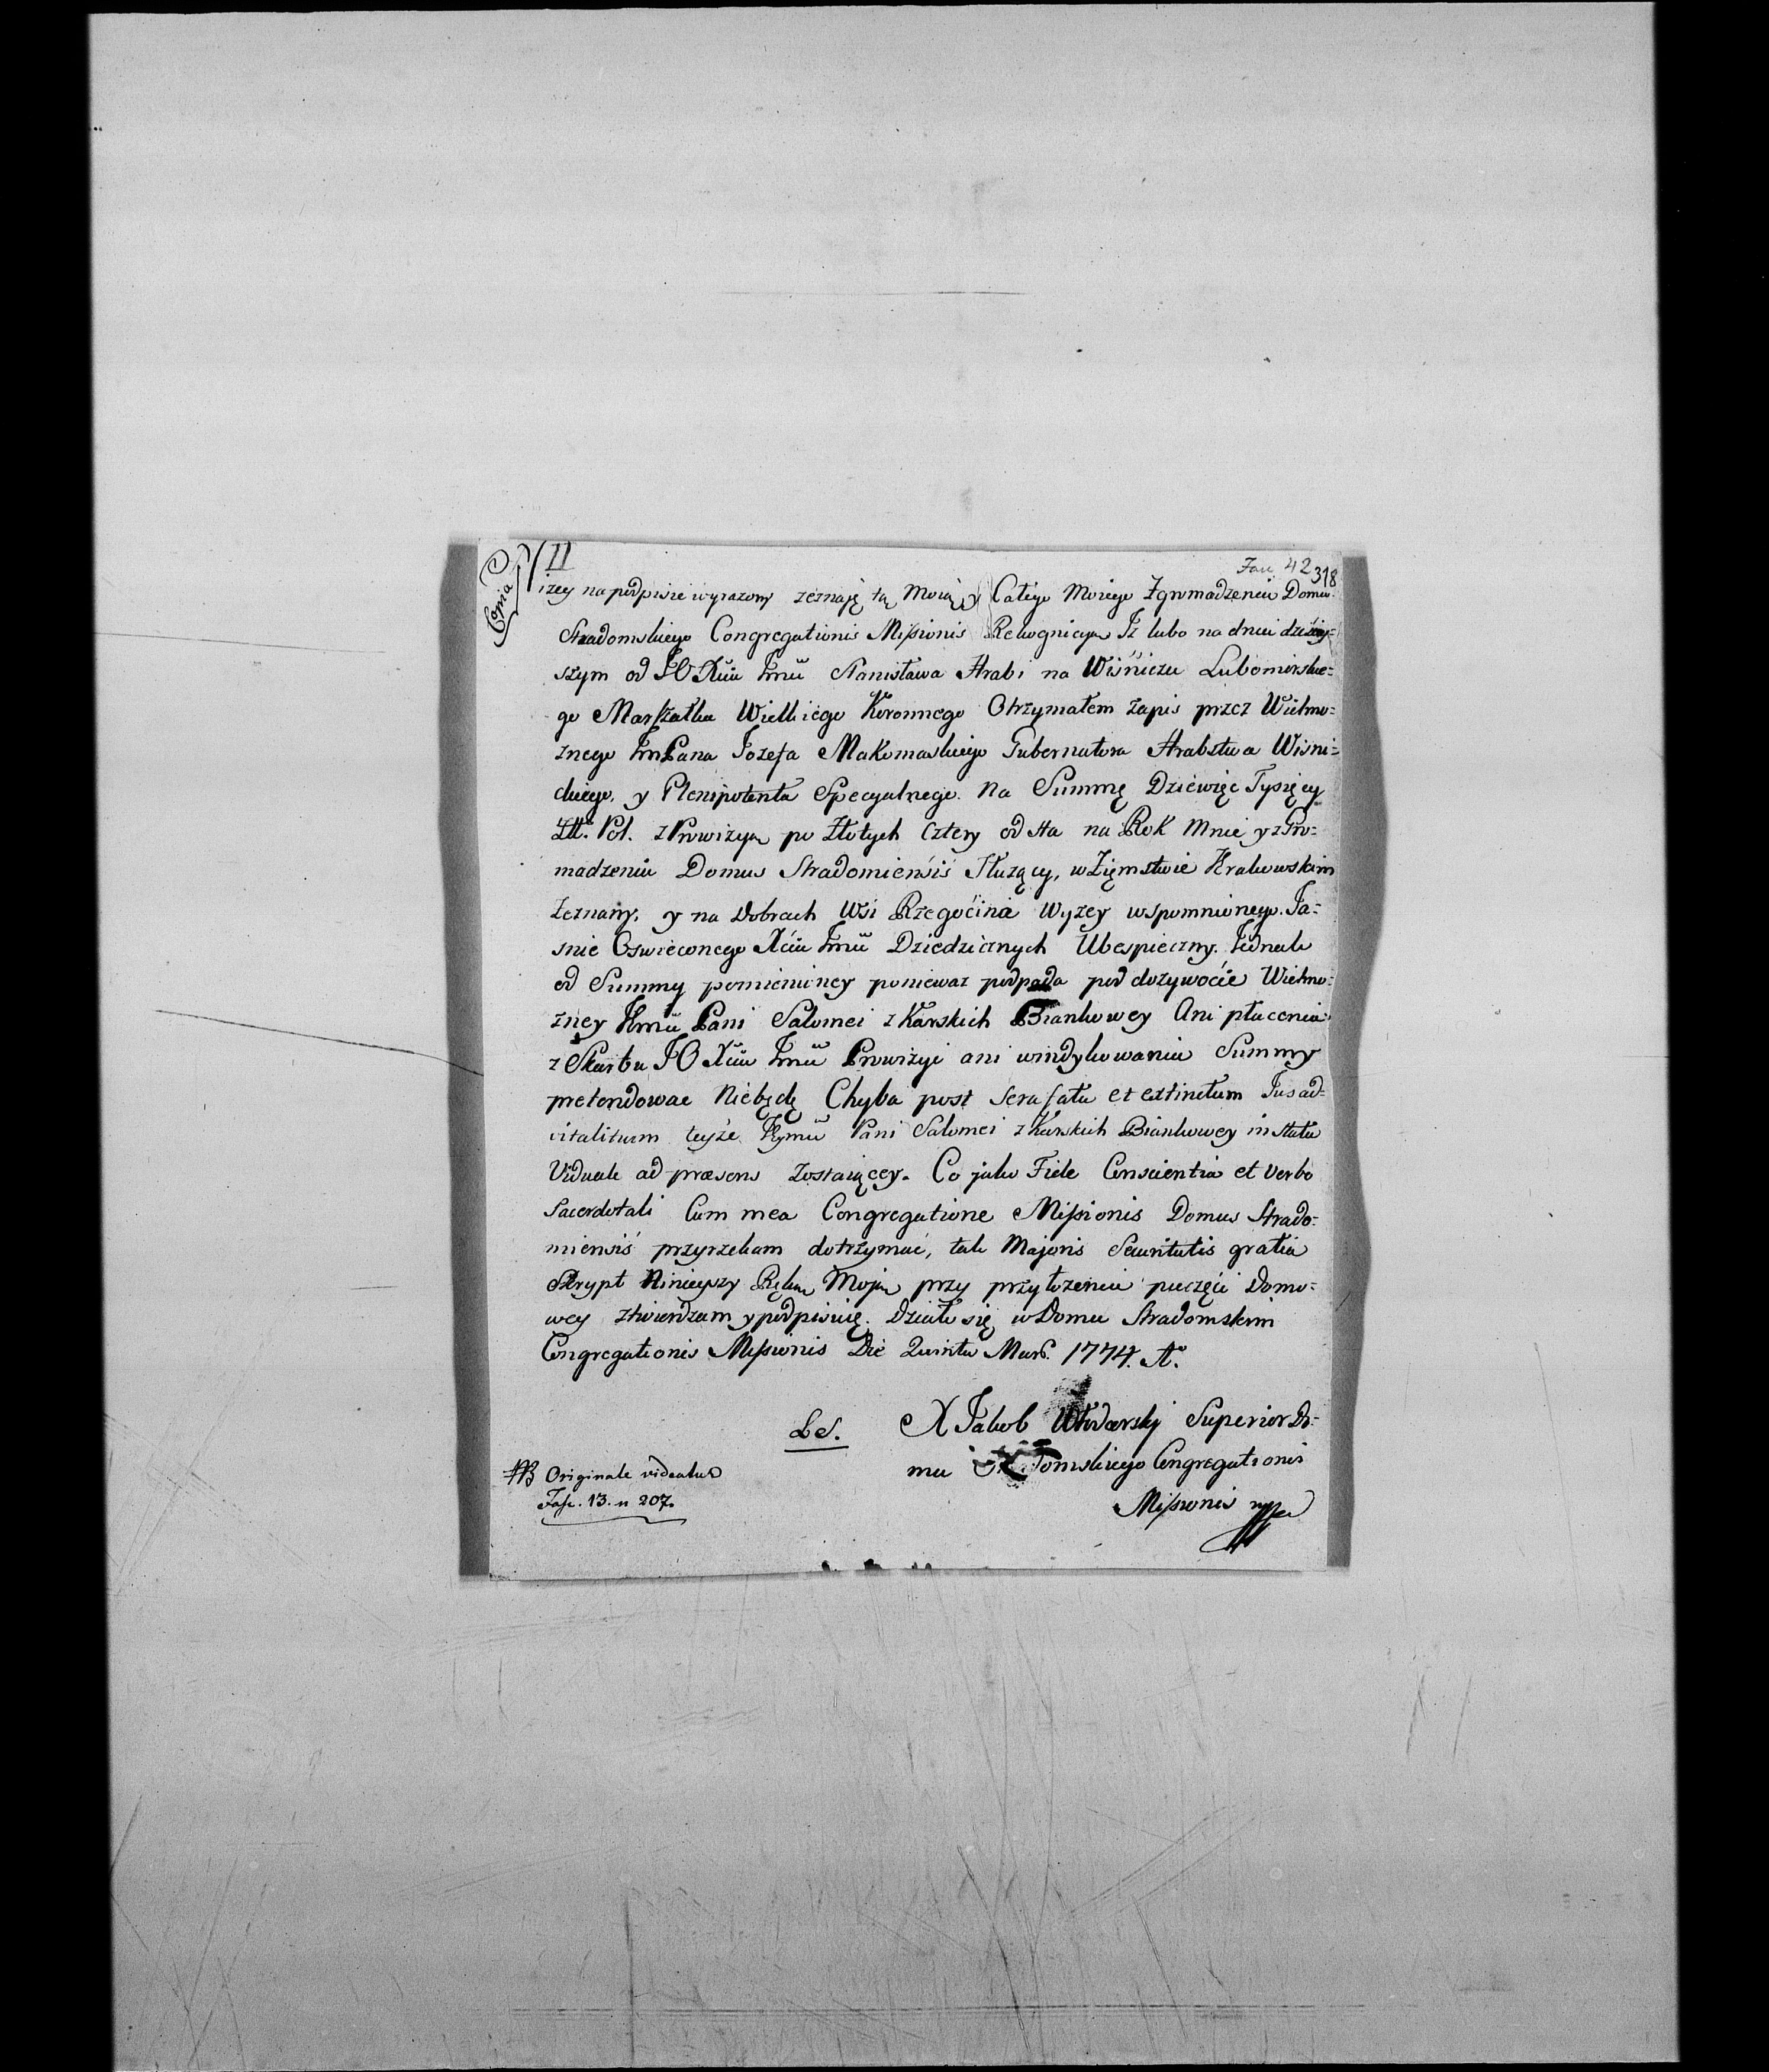 II
Fasc 42 318
Copia
Niżey na podpisie wyrazony zeznaię tą Moią y Całego Moiego Zgromadzenia Domu
Stradomskiego Congregationis Missionis Rekognicyą Iż lubo na dniu dzisiey=
szym od JO Xcia Jmci Stanisława Hrabi na Wiśniczu Lubomirskie=
go Marszałka Wielkiego Koronnego Otrzymałem zapis przez Wielmo=
znego JmPana Jozefa Makomaskiego Gubernatora Hrabstwa Wisni=
ckiego, y Plenipotenta Specyalnego. Na Summę Dziewięc Tysięcy
Złł. Pol. z Prowizyą po Złotych Cztery od sta na Rok Mnie y zGro=
madzeniu Domus Stradomiensis Służący, w Ziemstwie Krakowskim
Zeznany, y na Dobrach Wsi Rzegocina Wyzey wspomnionego. Ja=
snie Oswieconego Xcia Jmci Dziedzicznych Ubespieczny. Jednak
od Summy pomienioney poniewaz podpada pod dozywocie Wielmo=
zney Jmci Pani Salomei z Karskich Biankowey Ani płacenia
z Skarbu JO Xcia Jmci Prowizyi ani windykowania Summy
pretendowac Niebędę Chyba post sera fata et extinctum Jus ad=
vitalitium teyże Jeymci Pani Salomei z Karskich Biankowey in statu
Viduali ad præsens zostaiącey. Co jako Fide Conscientia et verbo
Sacerdotali Cum mea Congregatione Missionis Domus Strado=
miensis przyrzekam dotrzymać, tak Majoris Securitatis gratia
Skrypt Ninieyszy Ręką Moją przy przyłozeniu pieczęci Domo=
wey ztwierdzam y podpisuię. Działo się w Domu Stradomskim
Congregationis Missionis Die Quinta Mars. 1774. Aº.
LS.
X Jakob Włodarski Superior Do=
mu Stradomskiego Congregationis
Missionis mppa
NB Originale videatur
Fasc. 13. n 207.